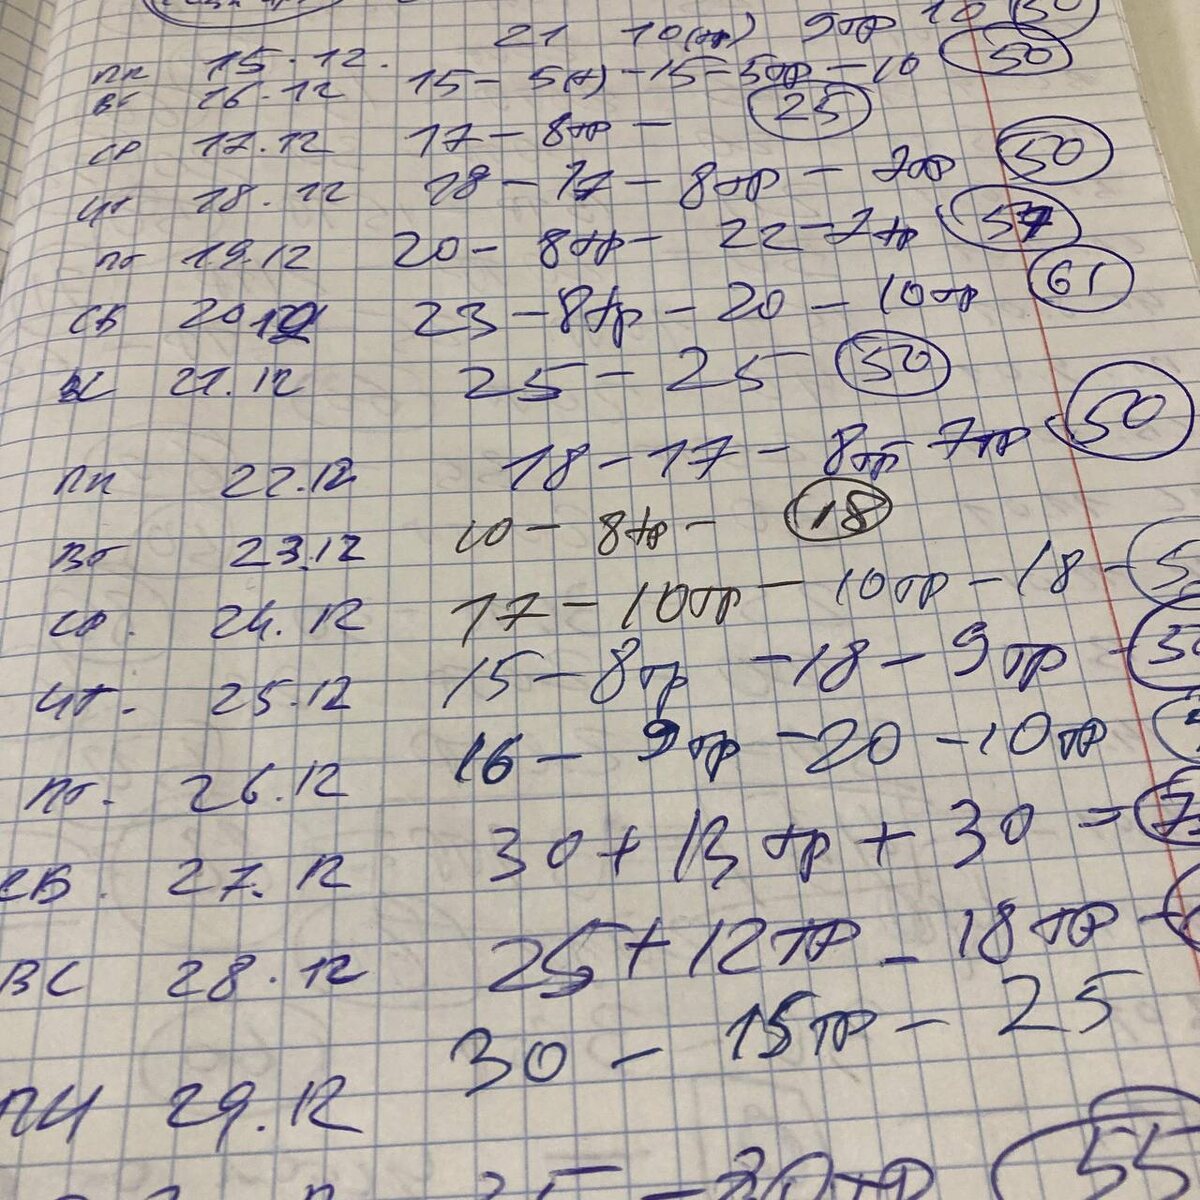 пн 15.12. 21 10(тр) 9тр 10 50
вт 16.12 15 - 5(т) - 15 - 5тр - 10 50
ср 17.12 17 - 8тр - 25
чт 18.12 18 - 17 - 8тр - 7тр 50
пт 19.12 20 - 8тр - 22 - 7тр 57
сб 20.12 23 - 8тр - 20 - 10тр 61
вс 21.12 25 - 25 - 50
пн 22.12 18 - 17 - 8тр - 7тр 50
вт 23.12 10 - 8тр - 18
ср. 24.12 17 - 10тр - 10тр - 18 -
чт. 25.12 15 - 8тр - 18 - 9тр -
пт. 26.12 16 - 9тр - 20 - 10тр
сб. 27.12 30 + 13тр + 30 =
вс 28.12 25 + 12тр - 18тр -
пн 29.12 30 - 15тр - 25
55